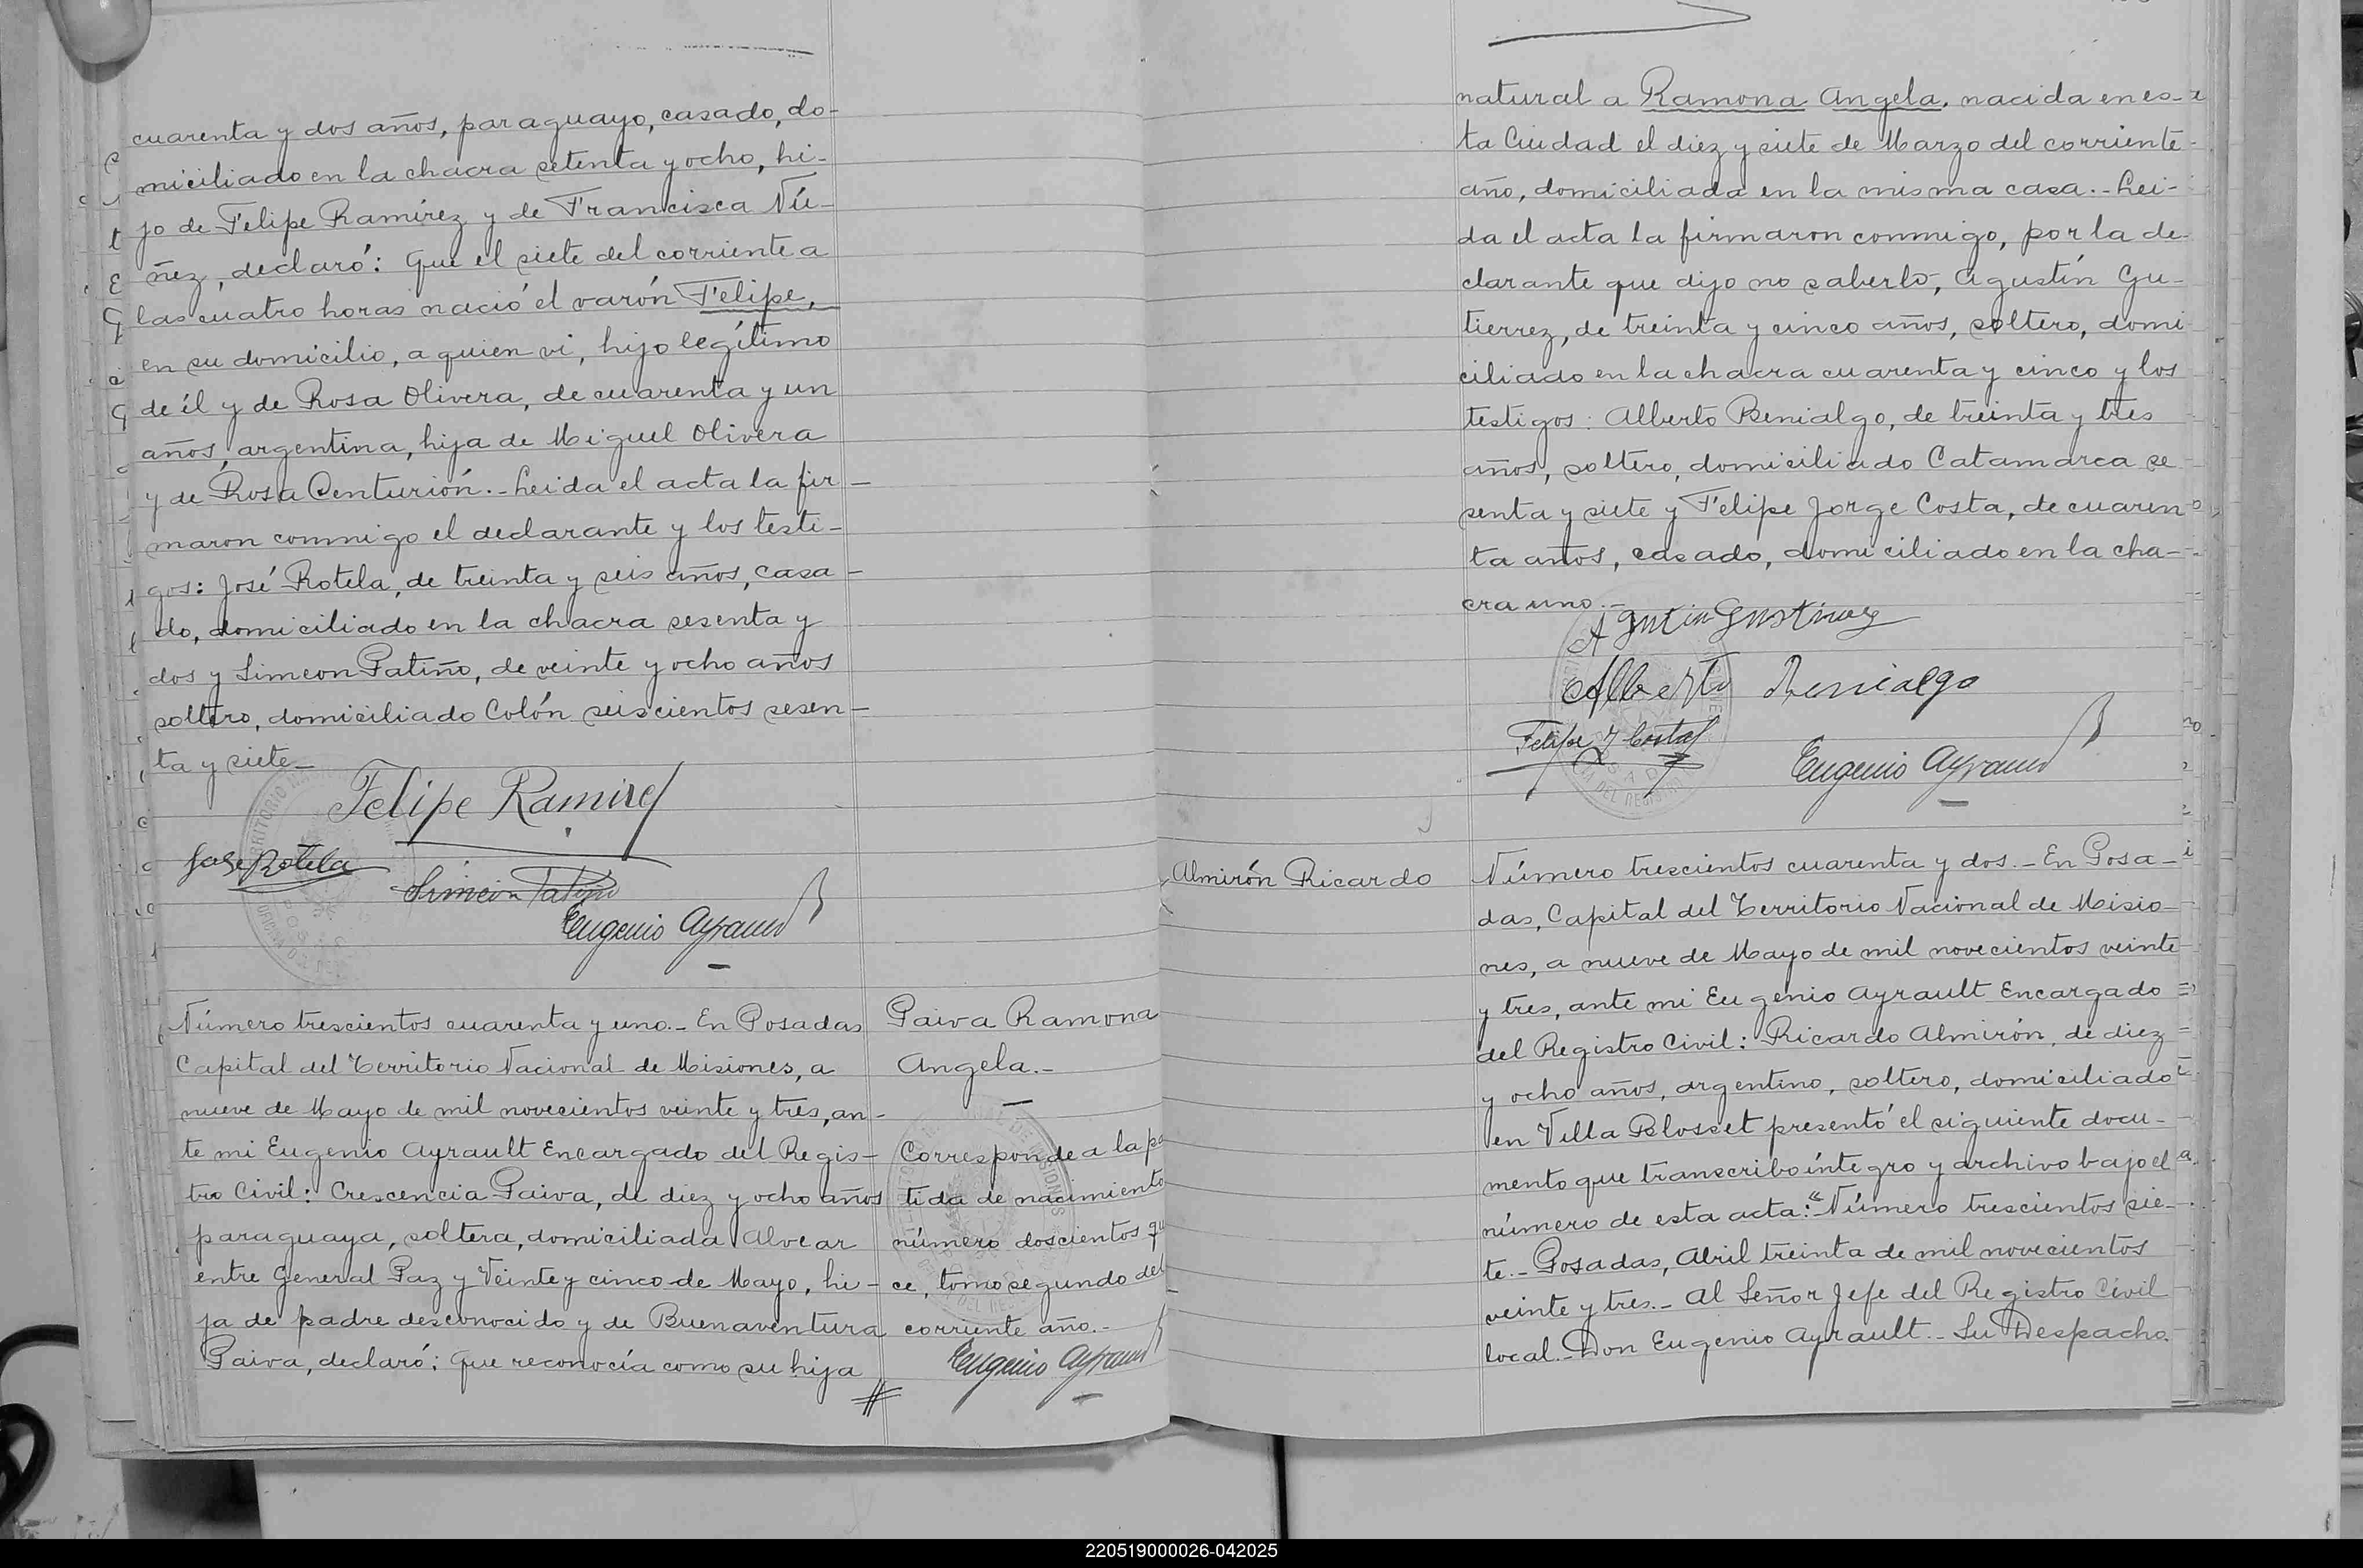 cuarenta y dos años, paraguayo, casado, do-
miciliado en la chacra setenta y ocho, hi-
jo de Felipe Ramírez y de Francisca Nú-
ñez, declaró: Que el siete del corriente a
las cuatro horas nació el varón Felipe,
en su domicilio, a quien vi, hijo legítimo
de él y de Rosa Olivera, de cuarenta y un
años, argentina, hija de Miguel Olivera
y de Rosa Centurión.- Leida el acta la fir-
maron conmigo el declarante y los testi-
gos: José Rotela, de treinta y seis años, casa-
do, domiciliado en la chacra sesenta y
dos y Simeon Patiño, de veinte y ocho años
soltero, domiciliado Colón seiscientos sesen-
ta y siete_
Felipe Ramirez
Jose Rotela
Simeon Patiño
Eugenio Ayrault
Número trescientos cuarenta y uno.- En Posadas
Capital del Territorio Nacional de Misiones, a
nueve de Mayo de mil novecientos veinte y tres, an-
te mi Eugenio Ayrault Encargado del Regis-
tro Civil: Crescencia Paiva, de diez y ocho años
paraguaya, soltera, domiciliada Alvear
entre General Paz y Veinte y cinco de Mayo, hi-
ja de padre desconocido y de Buenaventura
Paiva, declaró: Que reconocía como su hija
Paiva Ramona
Angela.-
Corresponde a la pa
tida de nacimiento
número doscientos qu
ce, tomo segundo del
corriente año.-
Eugenio Ayrault
natural a Ramona Angela, nacida en es-
ta Ciudad el diez y siete de Marzo del corriente
año, domiciliada en la misma casa.- Lei-
da el acta la firmaron conmigo, por la de-
clarante que dijo no saberlo, Agustín Gu-
tierrez, de treinta y cinco años, soltero, domi
ciliado en la chacra cuarenta y cinco y los
testigos: Alberto Benialgo, de treinta y tres
años, soltero, domiciliado Catamarca se
senta y siete y Felipe Jorge Costa, de cuaren
ta años, casado, domiciliado en la cha-
cra uno.-
Alberto Benialgo
Felipe J Costa
Eugenio Ayrault
Almirón Ricardo
Número trescientos cuarenta y dos.- En Posa-
das, Capital del Territorio Nacional de Misio-
nes, a nueve de Mayo de mil novecientos veinte
y tres, ante mi Eugenio Ayrault Encargado
del Registro Civil: Ricardo Almirón, de diez
y ocho años, argentino, soltero, domiciliado
en Villa Blosset presentó el siguiente docu-
mento que transcribo íntegro y archivo bajo el
número de esta acta: "Número trescientos sie-
te.- Posadas, Abril treinta de mil novecientos
veinte y tres.- Al Señor Jefe del Registro Civil
local.- Don Eugenio Ayrault.- Su Despacho.
220519000026-042025